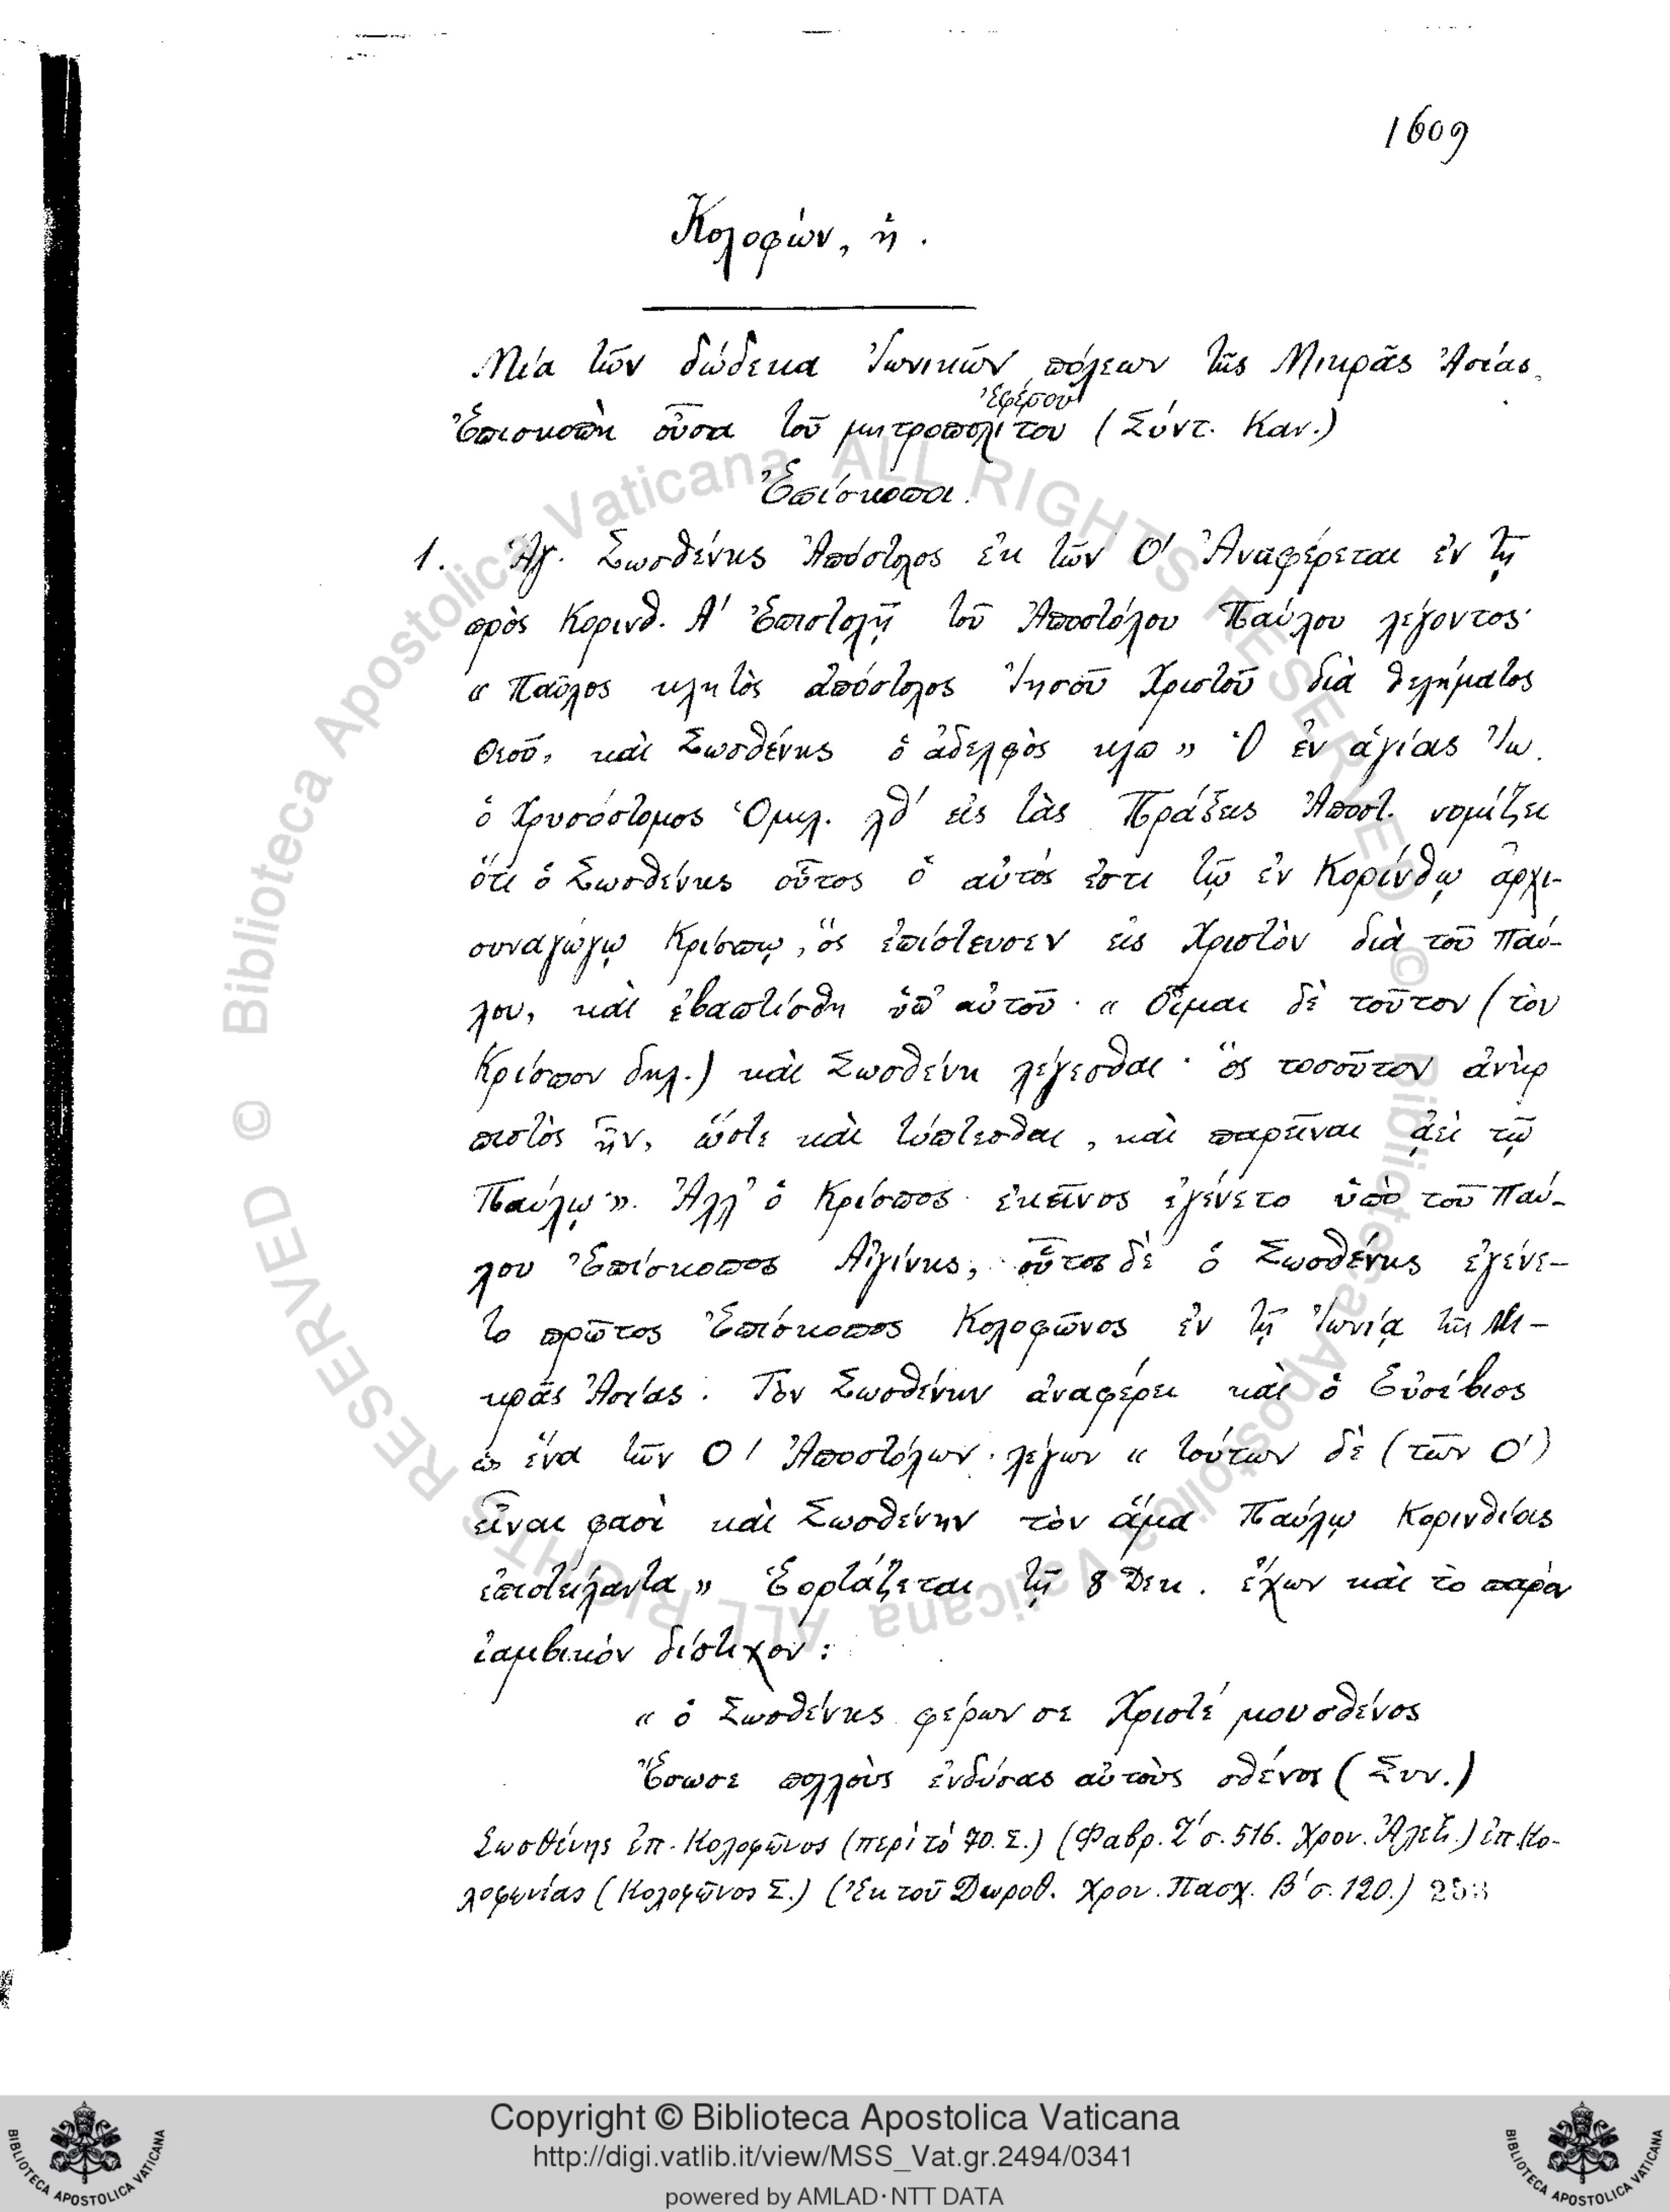 1609
Κολοφών, ἡ.
Μία τῶν δώδεκα Ἰωνικῶν πόλεων τῆς Μικρᾶς Ἀσίας,
Ἐφέσου
Ἐπισκοπὴ οὖσα τοῦ μητροπολίτου (Σύντ. Καν.)
Ἐπίσκοποι.
1. Ἁγ. Σωσθένης Ἀπόστολος ἐκ τῶν Ο' Ἀναφέρεται ἐν τῇ
πρὸς Κορινθ. Α' Ἐπιστολῇ τοῦ Ἀποστόλου Παύλου λέγοντος·
« Παῦλος κλητὸς ἀπόστολος Ἰησοῦ Χριστοῦ διὰ θελήματος
Θεοῦ, καὶ Σωσθένης ὁ ἀδελφὸς κλπ » Ὁ ἐν ἁγίαις Ἰω.
ὁ Χρυσόστομος Ὁμιλ. λθ' εἰς τὰς Πράξεις Ἀποστ. νομίζει
ὅτι ὁ Σωσθένης οὗτος ὁ αὐτός ἐστι τῷ ἐν Κορίνθῳ ἀρχι-
συναγώγῳ Κρίσπῳ, ὃς ἐπίστευσεν εἰς Χριστὸν διὰ τοῦ Παύ-
λου, καὶ ἐβαπτίσθη ὑπ' αὐτοῦ· « Οἶμαι δὲ τοῦτον (τὸν
Κρίσπον δηλ.) καὶ Σωσθένη λέγεσθαι· ὃς τοσοῦτον ἀνὴρ
πιστὸς ἦν, ὥστε καὶ τύπτεσθαι, καὶ παρεῖναι ἀεὶ τῷ
Παύλῳ ». Ἀλλ' ὁ Κρίσπος ἐκεῖνος ἐγένετο ὑπὸ τοῦ Παύ-
λου Ἐπίσκοπος Αἰγίνης, οὗτος δὲ ὁ Σωσθένης ἐγένε-
το πρῶτος Ἐπίσκοπος Κολοφῶνος ἐν τῇ Ἰωνίᾳ τῆς Μι-
κρᾶς Ἀσίας. Τὸν Σωσθένην ἀναφέρει καὶ ὁ Εὐσέβιος
ὡς ἕνα τῶν Ο' Ἀποστόλων λέγων « τούτων δὲ (τῶν Ο')
εἶναι φασὶ καὶ Σωσθένην τὸν ἅμα Παύλῳ Κορινθίοις
ἐπιστείλαντα » Ἑορτάζεται τῇ 8 Δεκ. ἔχων καὶ τὸ παρὸν
ἰαμβικόν δίστιχον:
« ὁ Σωσθένης φέρων σε Χριστέ μου σθένος
Ἔσωσε πολλοὺς ἐνδύσας αὐτοὺς σθένος (Συν.)
Σωσθένης ἐπ. Κολοφῶνος (περὶ τό 70. Σ.) (Φαβρ. Ζ' σ. 516. Χρον. Ἀλεξ.) ἐπ. Κο-
λοφωνίας (Κολοφῶνος Σ.) (Ἐκ τοῦ Δωροθ. Χρον. Πασχ. β' σ. 120.) 253
© Biblioteca Apostolica Vaticana ALL RIGHTS RESERVED © Biblioteca Apostolica Vaticana ALL RIGHTS RESERVED
Copyright © Biblioteca Apostolica Vaticana
http://digi.vatlib.it/view/MSS_Vat.gr.2494/0341
powered by AMLAD·NTT DATA
BIBLIOTECA APOSTOLICA VATICANA
BIBLIOTECA APOSTOLICA VATICANA